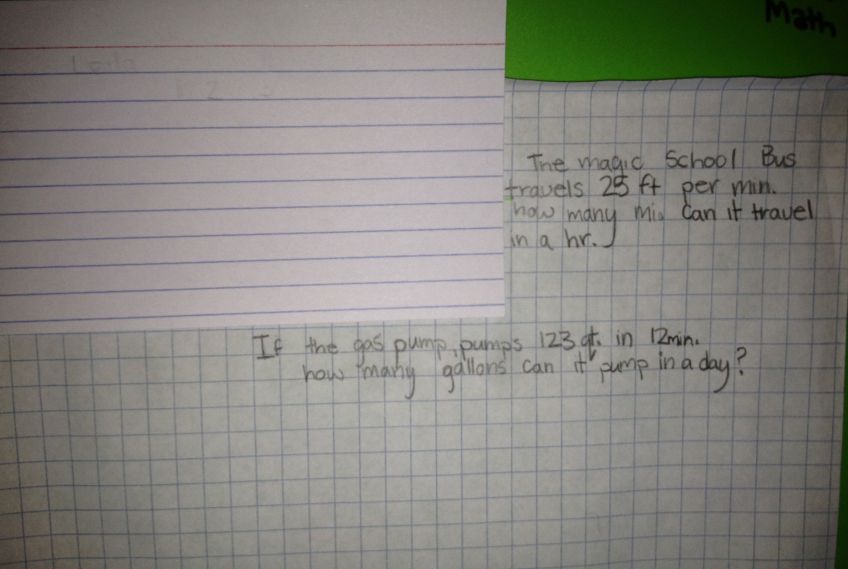 Math
The magic School Bus
travels 25 ft per min.
how many mi. can it travel
in a hr.
If the gas pump, pumps 123 qt. in 12min.
how many gallons can it pump in a day?